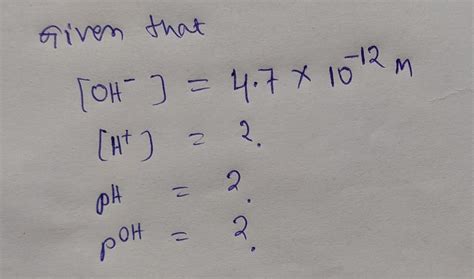 Given that
[OH⁻] = 4.7 × 10⁻¹² M
[H⁺] = ?
pH = ?
pOH = ?